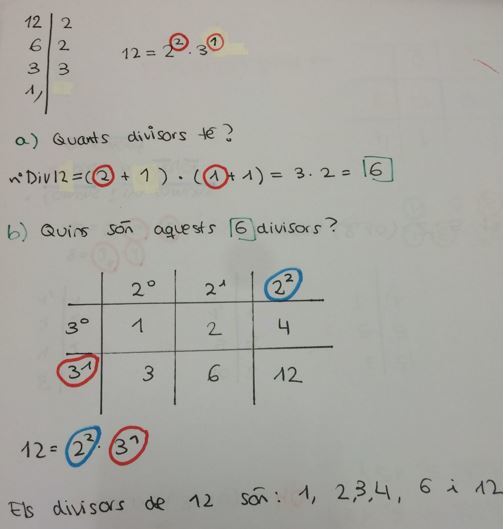 12 | 2
6 | 2
3 | 3
1, |
12 = 2² · 3¹
a) Quants divisors té?
nºDiv12 = (2 + 1) · (1 + 1) = 3 · 2 = 6
b) Quins són aquests 6 divisors?
2⁰ | 2¹ | 2²
3⁰ | 1 | 2 | 4
3¹ | 3 | 6 | 12
12 = 2² · 3¹
Els divisors de 12 són: 1, 2,3,4, 6 i 12